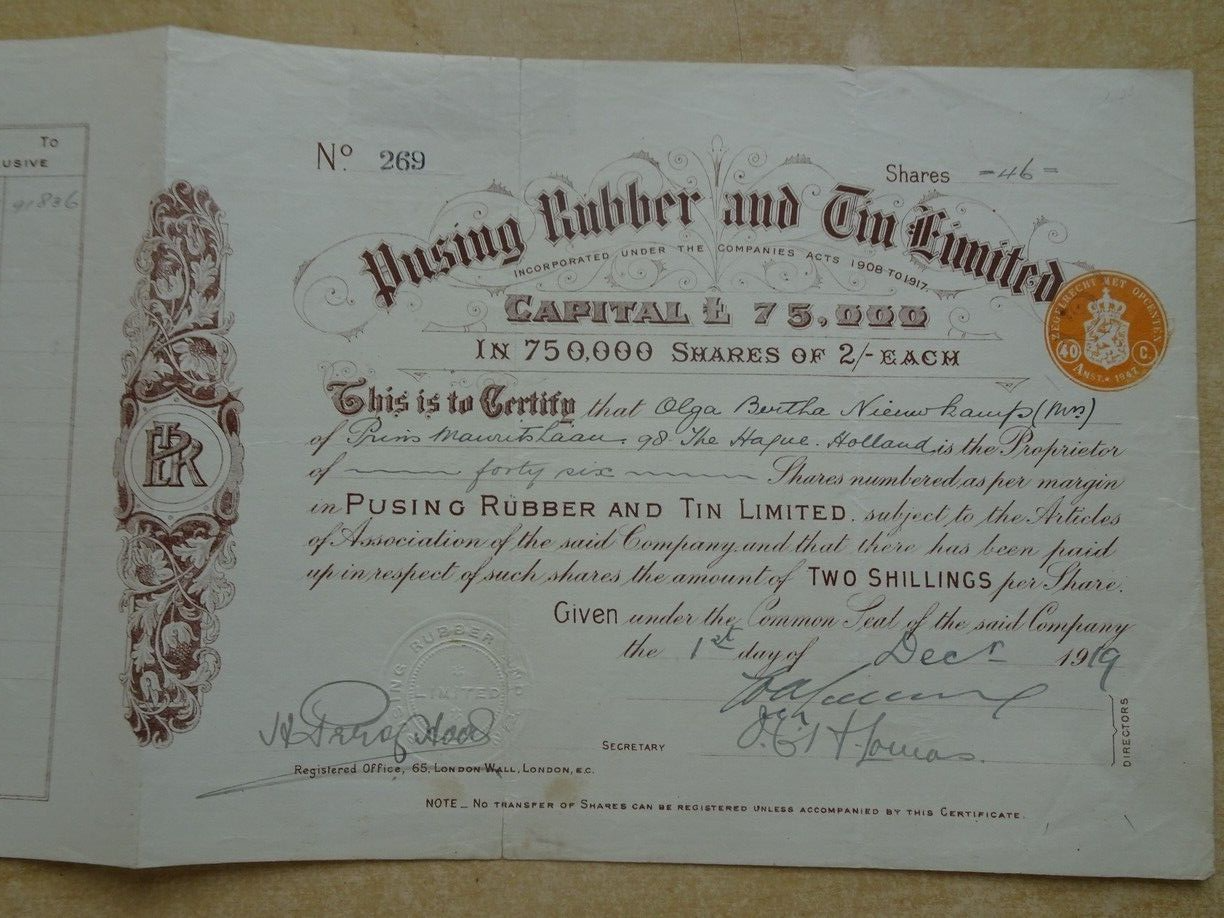 To
USIVE
91836
No 269
Shares -46-
Pusing Rubber and Tin Limited
INCORPORATED UNDER THE COMPANIES ACTS 1908 TO 1917.
CAPITAL £ 75,000
IN 750,000 SHARES OF 2/- EACH
ZEGELRECHT MET OPCENTEN
40 C.
AMST. * 1947
This is to Certify that Olga Bertha Nieuwkamp (Mrs)
of Prins Mauritslaan 98 The Hague. Holland is the Proprietor
of forty six Shares numbered, as per margin
in PUSING RUBBER AND TIN LIMITED. subject to the Articles
of Association of the said Company, and that there has been paid
up in respect of such shares, the amount of TWO SHILLINGS per Share.
Given under the Common Seal of the said Company
the 1st day of Decr 1919
PUSING RUBBER AND
LIMITED
SECRETARY
DIRECTORS
Registered Office, 65, LONDON WALL, LONDON, E.C.
NOTE_ NO TRANSFER OF SHARES CAN BE REGISTERED UNLESS ACCOMPANIED BY THIS CERTIFICATE.